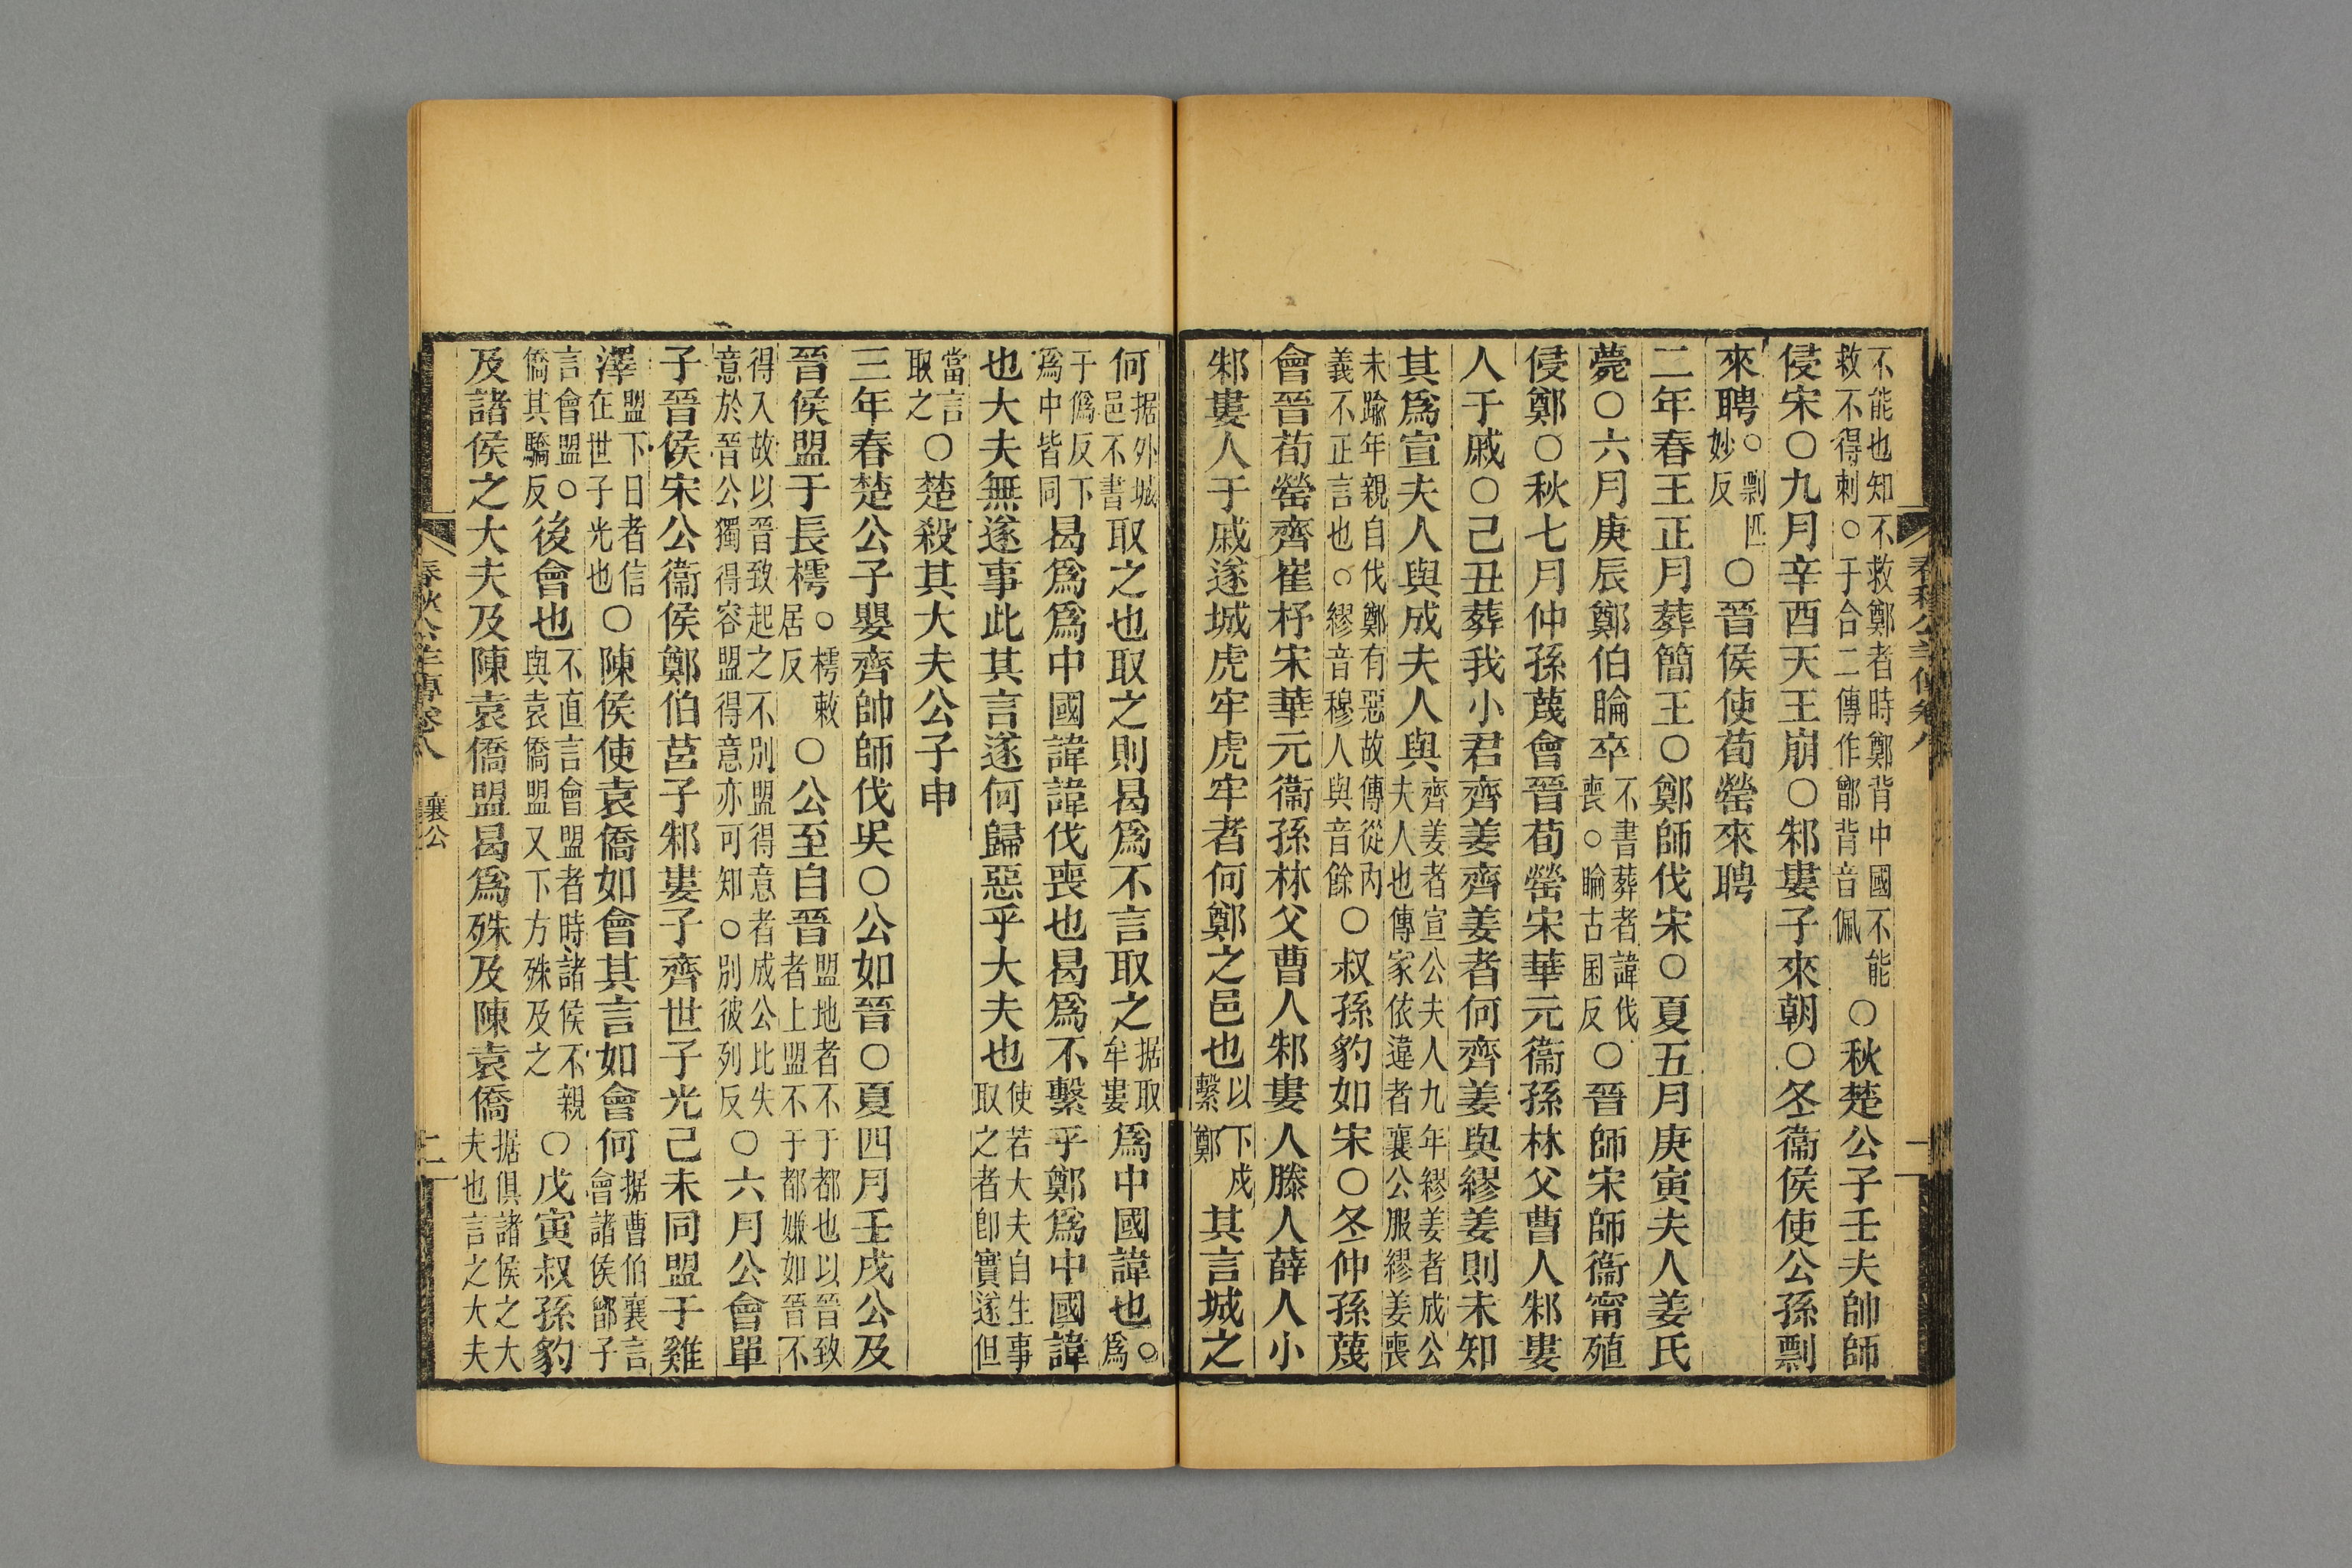 春秋公羊傳卷八
不能也知不救鄭者時鄭背中國不能救不得刺○于合二傳作鄫背音佩○秋楚公子壬夫帥師
侵宋○九月辛酉天王崩○邾婁子來朝○冬衞侯使公孫剽
來聘○剽匹妙反○晉侯使荀罃來聘
二年春王正月葬簡王○鄭師伐宋○夏五月庚寅夫人姜氏
薨○六月庚辰鄭伯睔卒不書葬者諱伐喪○睔古困反○晉師宋師衞甯殖
侵鄭○秋七月仲孫蔑會晉荀罃宋華元衞孫林父曹人邾婁
人于戚○己丑葬我小君齊姜齊姜者何齊姜與繆姜則未知
其爲宣夫人與成夫人與齊姜者宣公夫人九年繆姜者成公夫人也傳家依違者襄公服繆姜喪
未踰年親自伐鄭有惡故傳從內義不正言也○繆音穆人與音餘○叔孫豹如宋○冬仲孫蔑
會晉荀罃齊崔杼宋華元衞孫林父曹人邾婁人滕人薛人小
邾婁人于戚遂城虎牢虎牢者何鄭之邑也以下戍繫鄭其言城之
何据外城邑不書取之也取之則曷爲不言取之据取牟婁爲中國諱也○爲
于僞反下爲中皆同曷爲爲中國諱諱伐喪也曷爲不繫乎鄭爲中國諱
也大夫無遂事此其言遂何歸惡乎大夫也使若大夫自生事取之者卽實遂但
當言取之○楚殺其大夫公子申
三年春楚公子嬰齊帥師伐吳○公如晉○夏四月壬戌公及
晉侯盟于長樗○樗敕居反○公至自晉盟地者不于都也以晉致者上盟不于都嫌如晉不
得入故以晉致起之不別盟得意者成公比失意於晉公獨得容盟得意亦可知○別彼列反○六月公會單
子晉侯宋公衞侯鄭伯莒子邾婁子齊世子光己未同盟于雞
澤盟下日者信在世子光也○陳侯使袁僑如會其言如會何据曹伯襄言會諸侯鄫子
言會盟○僑其驕反後會也不直言會盟者時諸侯不親與袁僑盟又下方殊及之○戊寅叔孫豹
及諸侯之大夫及陳袁僑盟曷爲殊及陳袁僑据俱諸侯之大夫也言之大夫
春秋公羊傳卷八 襄公 二